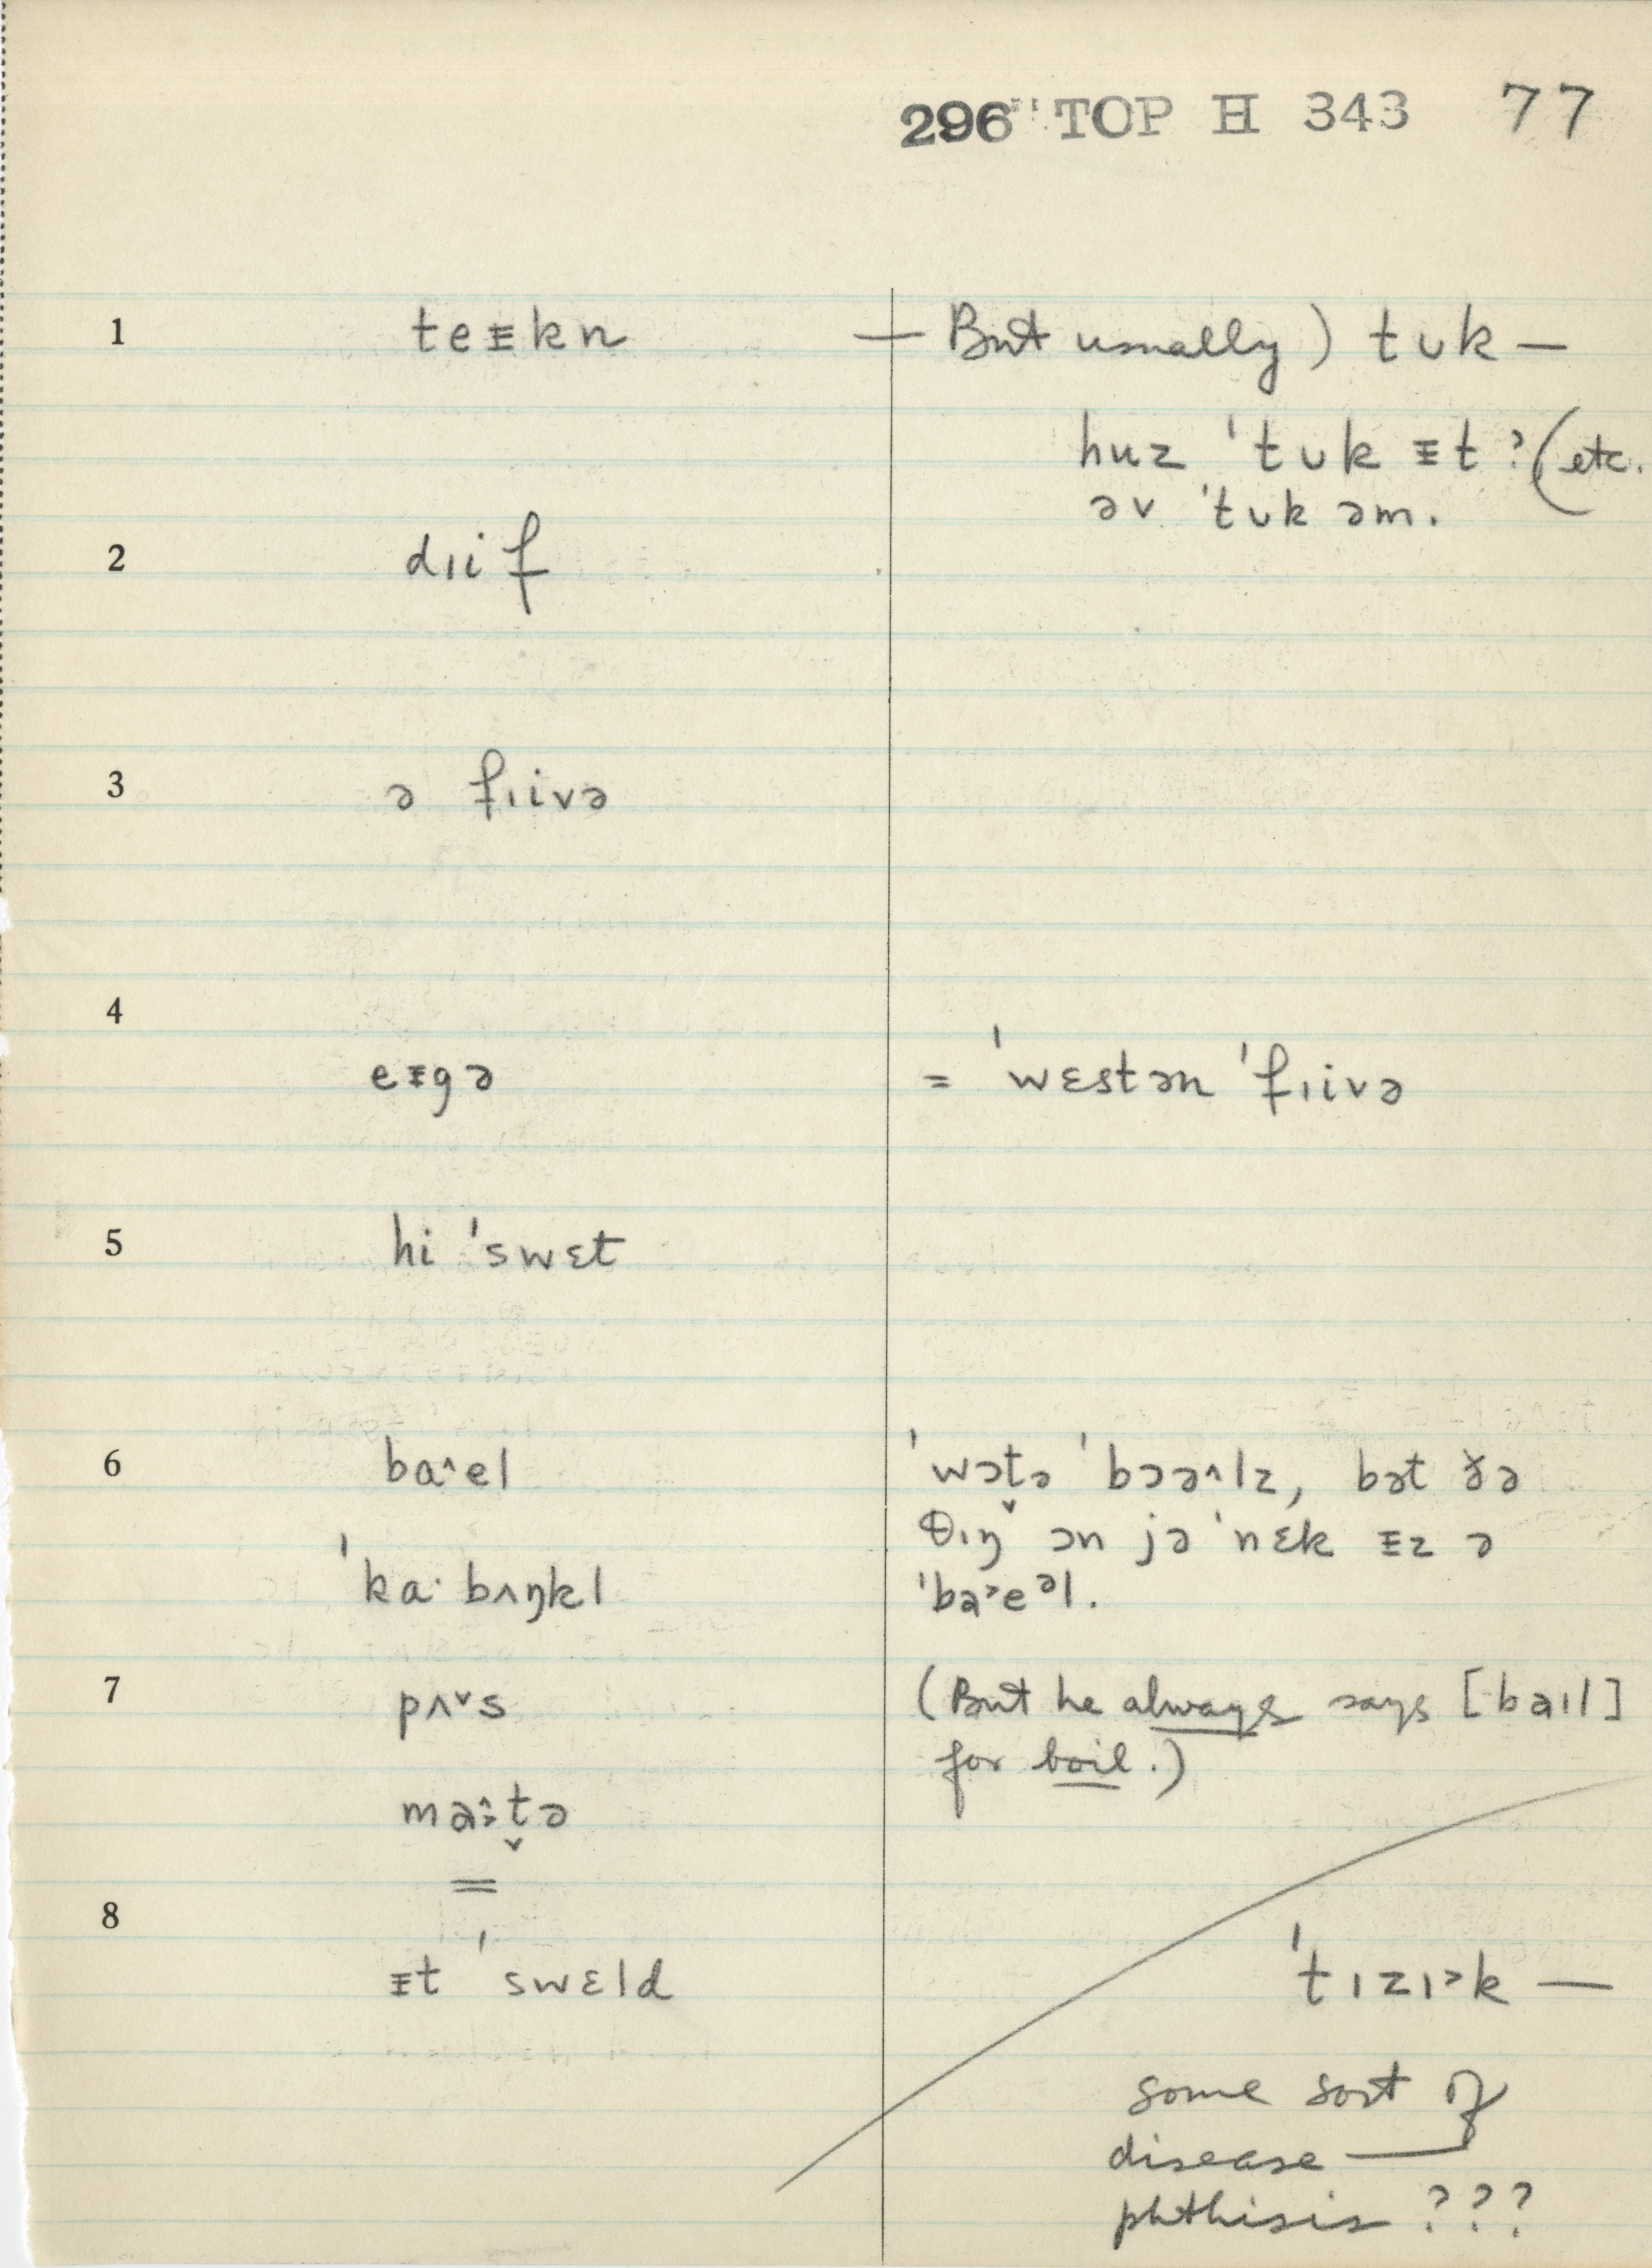 296 TOP H 343 77
1 teᵻkn — But usually) tʊk —
huz ˈtʊk ᵻt? (etc.
əv ˈtʊk əm.
2 dɪif
3 ə fɪivə
4
eᵻgə = ˈwɛstən ˈfɪivə
5 hi ˈswɛt
6 ba^el ˈwɔt̬ə ˈbɔə^lz, bət ðə
θɪŋ ɔn jə ˈnɛk ᵻz ə
ˈka· bʌŋkl ˈba˃eᵊl.
7 pʌ˅s (But he always says [baɪl]
for boil.)
t̬ə
=
8
ᵻt ˈswɛld ˈtɪzɪ˃k —
some sort of
disease —
phthisis ???